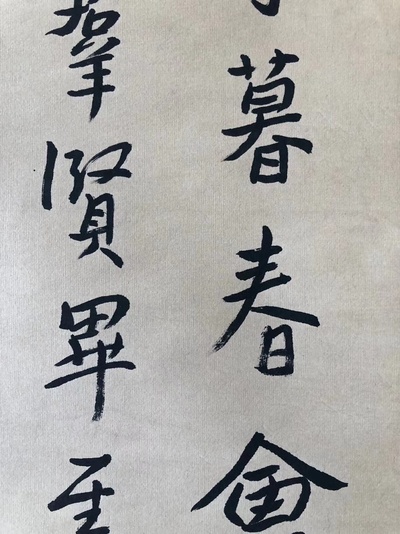 暮春會
羣賢畢至